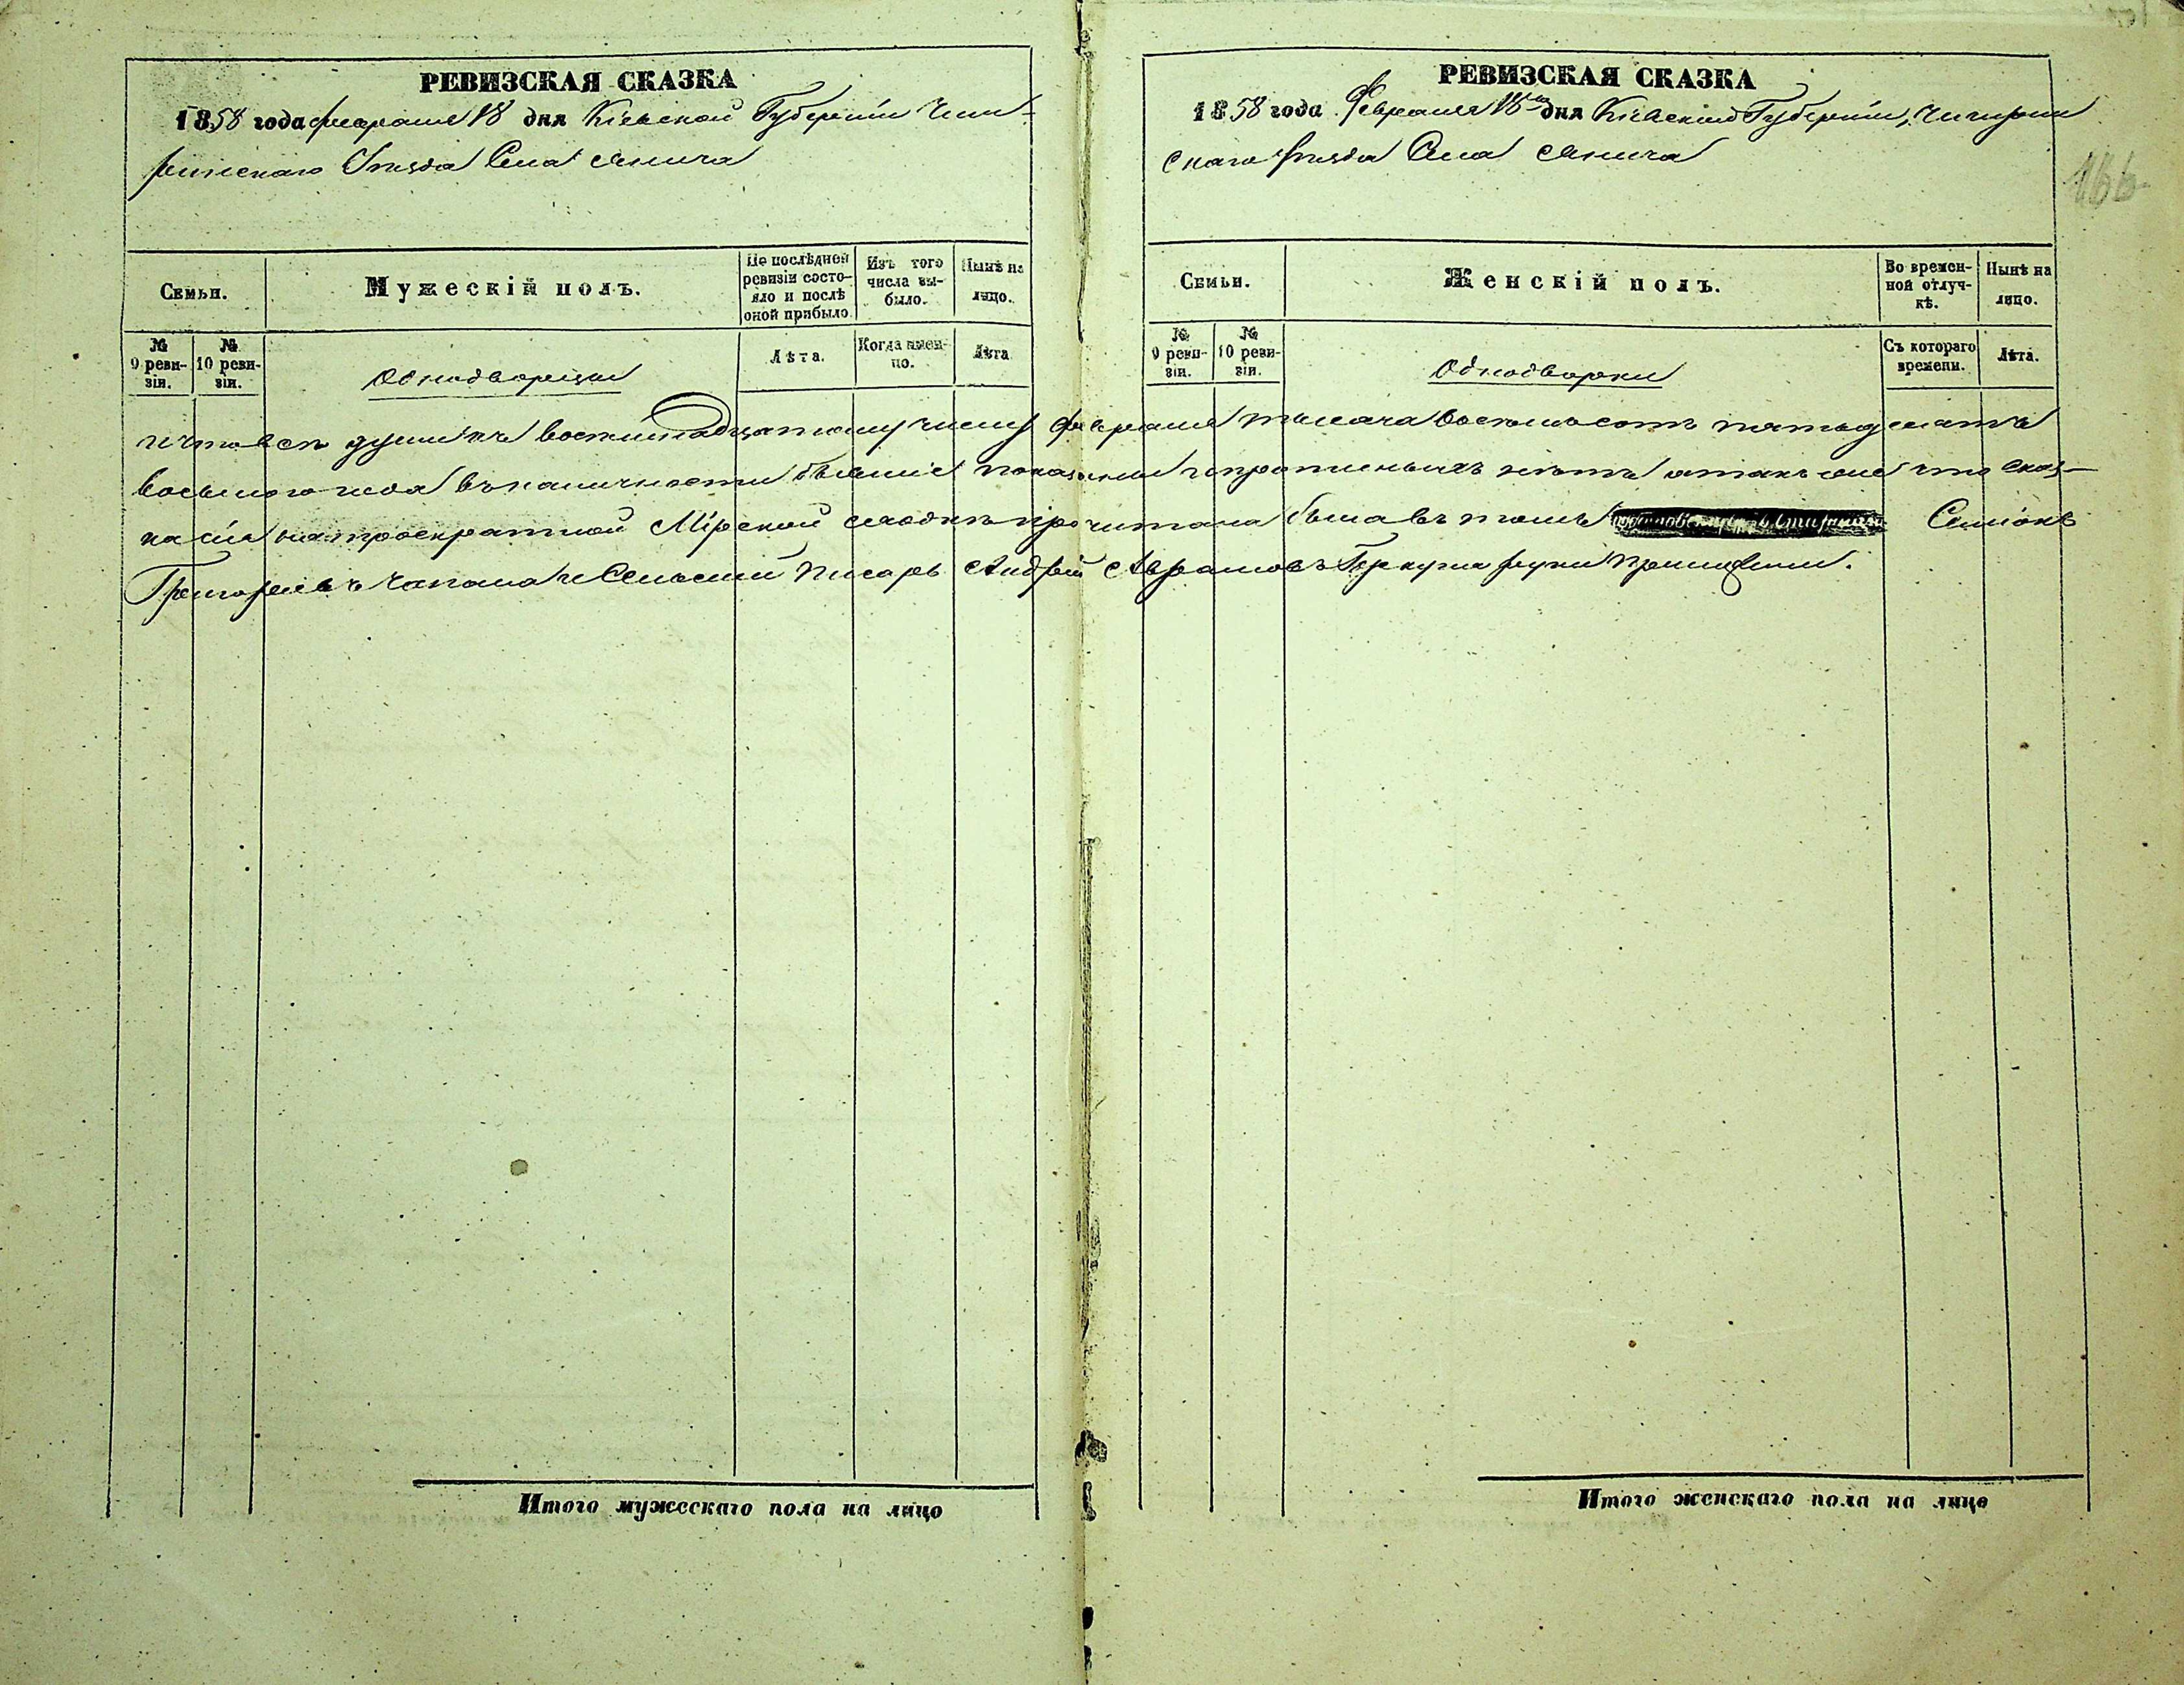 РЕВИЗСКАЯ СКАЗКА
1858 года февраля 18 дня Кіевской Губерніи Чиги-
ринскаго Уѣзда Села
Семьи.
Мужескій полъ.
По послѣдней ревизіи состо-яло и послѣ оной прибыло.
Изъ того числа вы-было.
Нынѣ на лицо.
№ 9 реви-зіи.
№ 10 реви-зіи.
Однодворцы
Лѣта.
Когда имен-но.
Лѣта
РЕВИЗСКАЯ СКАЗКА
1858 года Февраля 18го дня Кіевской Губерніи, Чигирин
скаго Уѣзда Села
166
Семьи.
Женскій полъ.
Во времен-ной отлуч-кѣ.
Нынѣ на лицо.
№ 9 реви-зіи.
№ 10 реви-зіи.
Однодворки
Съ котораго времени.
Лѣта.
и что всѣ души къ восемнадцатому числу февраля тысяча восемьсотъ пятьдесятъ
восьмого года въ наличности бывшіе показаны и прописныхъ нѣтъ а также что сказ-
ка сія на троекратной Мірской сходкѣ прочитана была въ томъ Семіонъ
Григорьевъ и Сельскій Писарь Андрей Аврамовъ руки приложили.
Итого мужескаго пола на лицо
Итого женскаго пола на лице